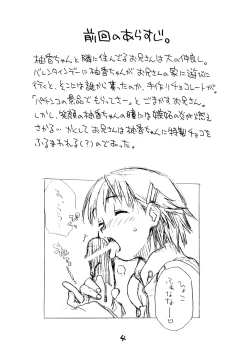 前回のあらすじ。
柚香ちゃんと隣に住んでるお兄さんは大の仲良し。
バレンタインデーに柚香ちゃんがお兄さんの家に遊びに
行くと、そこには誰から貰ったのか、手作りチョコレートが。
「パチンコの景品でもらってさー」とごまかすお兄さん。
しかし、笑顔の柚香ちゃんの瞳には嫉妬の炎が燃え
さかる…かくしてお兄さんは柚香に特製チョコを
ふるまわれる(?)のであった。
4